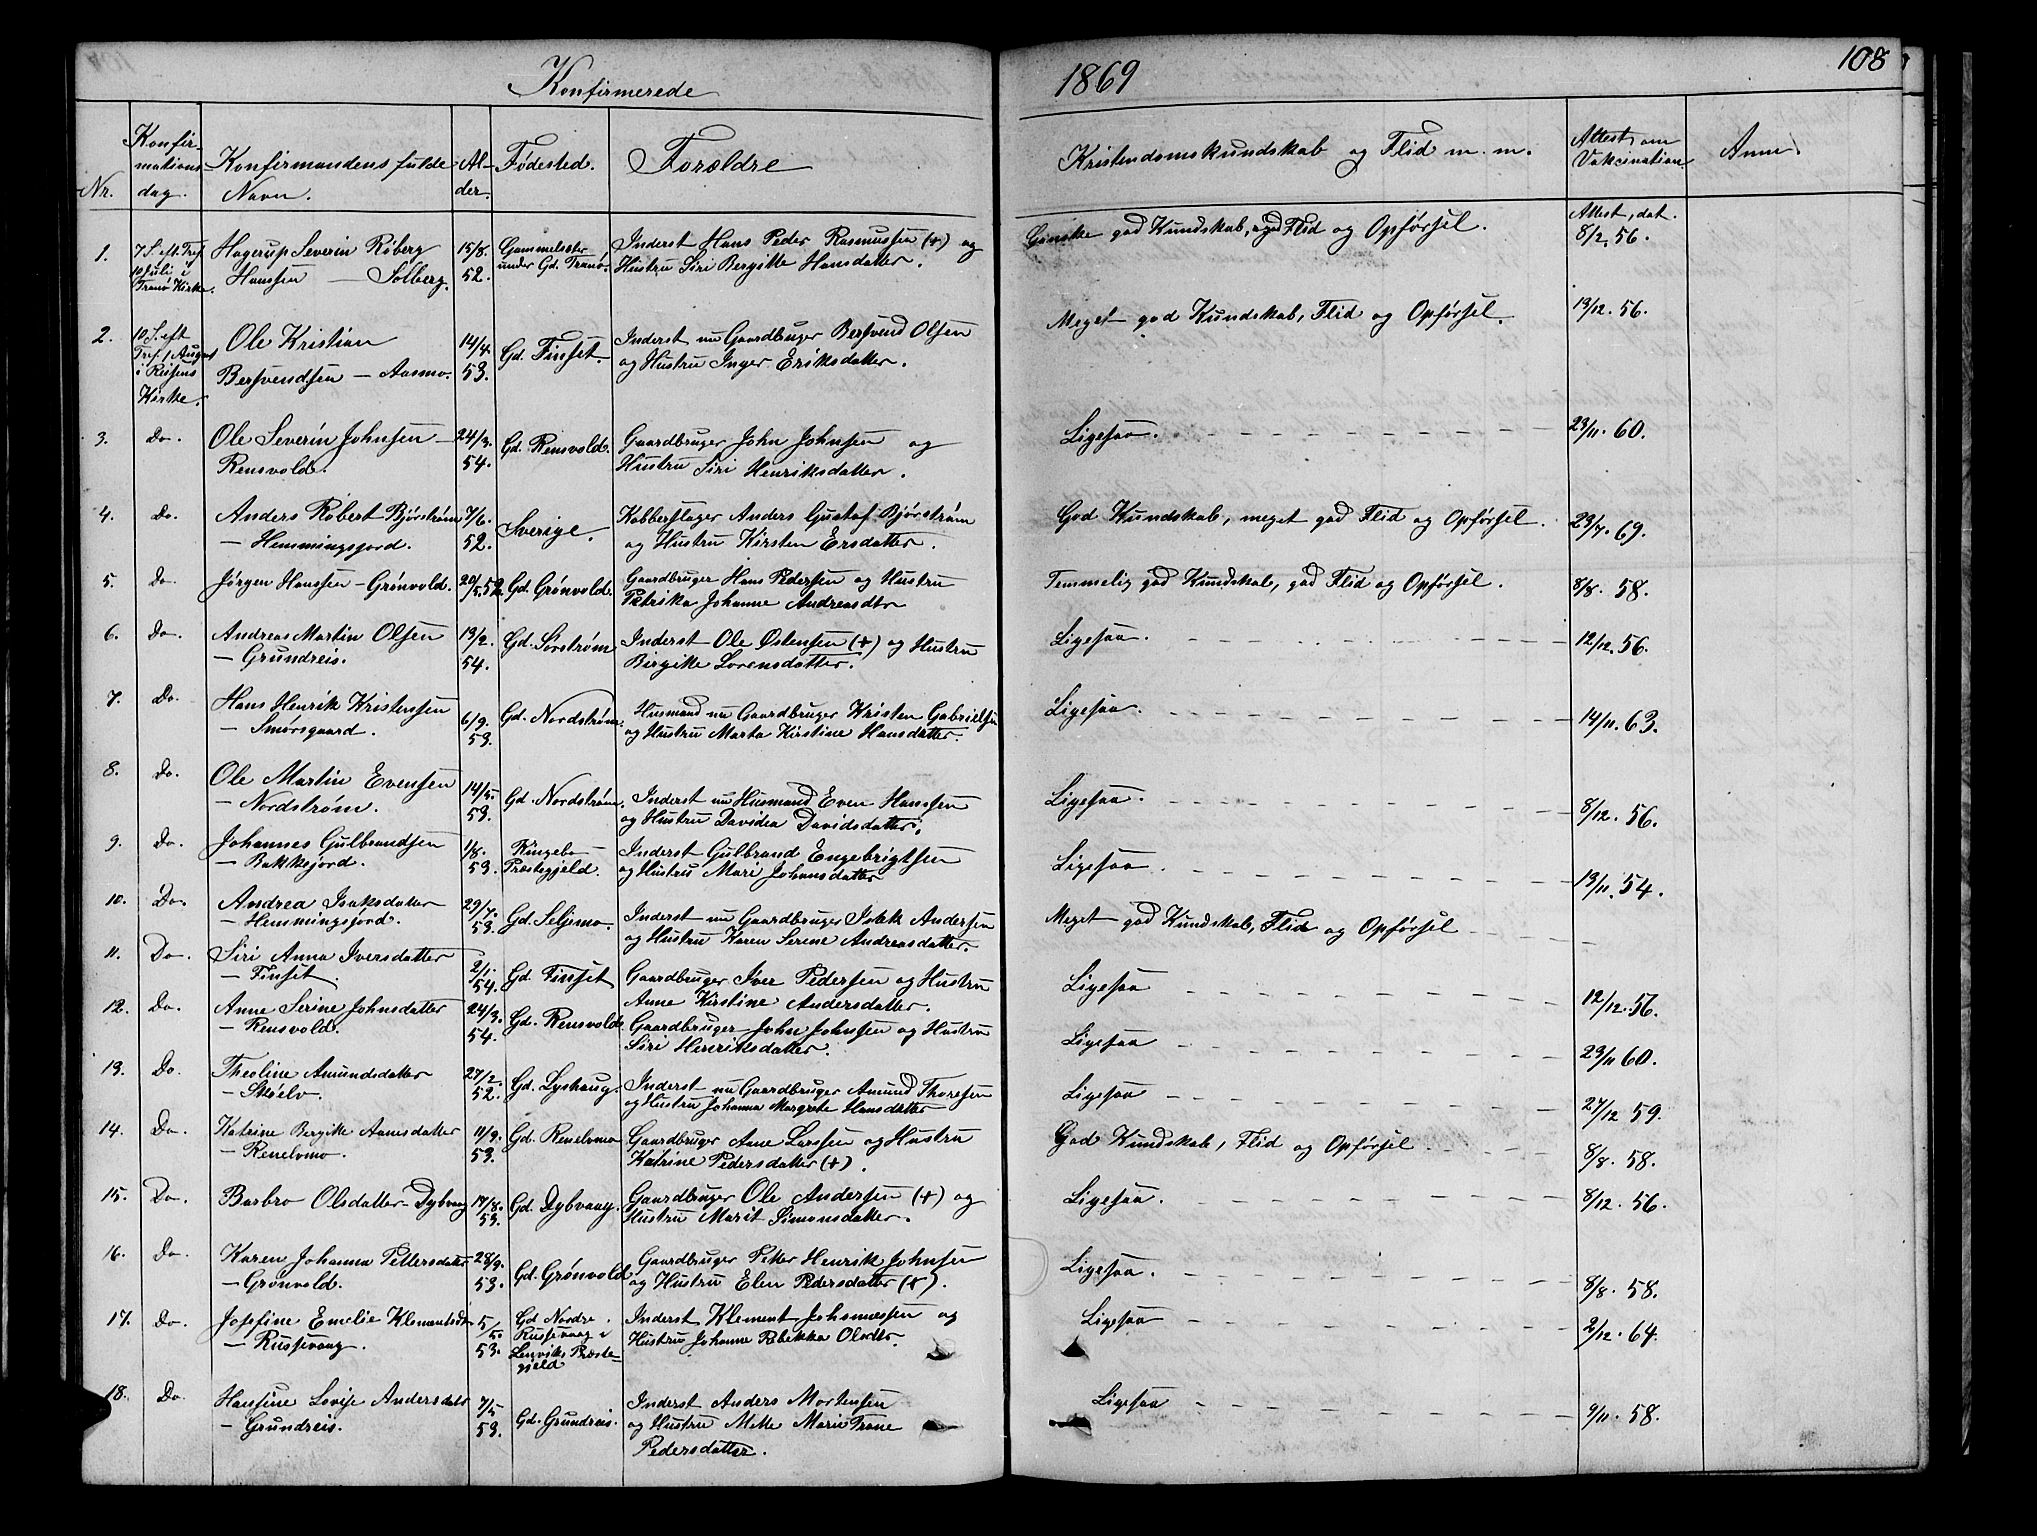 Konfirmerede
1869
108
Nr.
Konfir-
mations-
dag.
Konfirmandens fulde
Navn.
Al-
der.
Fødested.
Forældre
Kristendomskundskab og Flid m. m.
Attest om
Vakcination
Anm.
1.
7 S. eft. Tref.
10 Juli i
Tranø Kirke.
Hagerup Severin Røberg
Hanssen — Solberg.
15/8.
52.
Gammelsæter
under Gd. Tranø.
Inderst Hans Peder Rasmussen (+) og
Hustru Siri Bergitte Hansdatter.
Ganske god Kundskab, god Flid og Opførsel.
Attest, dat.
8/2. 56.
2.
10 S. eft
Tref. 1 August
i Reisens
Kirke.
Ole Kristian
Bersvendsen — Aasmo.
14/4.
53.
Gd. Finset.
Inderst nu Gaardbruger Bersvend Olsen
og Hustru Inger Eriksdatter.
Meget god Kundskab, Flid og Opførsel.
13/12. 56.
3.
Do.
Ole Severin Johnsen —
Rensvold.
24/3.
54.
Gd. Rensvold.
Gaardbruger John Johnsen og
Hustru Siri Henriksdatter.
Ligesaa.
23/11. 60.
4.
Do.
Anders Robert Bjørstrøm
— Hemmingsjord.
7/6.
52.
Sverige.
Kobberslager Anders Gustaf Bjørstrøm
og Hustru Kirsten Ersdatter.
God Kundskab, meget god Flid og Opførsel.
23/7. 69.
5.
Do.
Jørgen Hanssen — Grønvold.
20/5. 52.
Gd. Grønvold.
Gaardbruger Hans Pedersen og Hustru
Petrika Johanne Andreasdtr
Temmelig god Kundskab, god Flid og Opførsel.
8/8. 58.
6.
Do.
Andreas Martin Olsen
— Grundreis.
13/2.
54.
Gd. Sørstrøm
Inderst Ole Ostensen (+) og Hustru
Bergitte Lorensdatter.
Ligesaa.
12/12. 56.
7.
Do.
Hans Henrik Kristensen
— Smørsgaard.
6/9.
53.
Gd. Nordstrøm.
Husmand nu Gaardbruger Kristen Gabrielsen
og Hustru Marta Kirstine Hansdatter.
Ligesaa.
14/11. 63.
8.
Do.
Ole Martin Evensen
— Nordstrøm.
14/5.
53.
Gd. Nordstrøm.
Inderst nu Husmand Even Hanssen
og Hustru Davidea Davidsdatter.
Ligesaa.
8/12. 56.
9.
Do.
Johannes Gulbrandsen
— Bakkejord.
1/8.
53.
Ringebo
Præstegjeld.
Inderst Gulbrand Engebrigtsen
og Hustru Mari Johansdatter
Ligesaa.
13/11. 54.
10.
Do.
Andrea Isaksdatter
— Hemmingsjord.
29/7.
53.
Gd. Seljemo.
Inderst nu Gaardbruger Isak Andersen
og Hustru Karen Serene Andreasdatter.
Meget god Kundskab, Flid og Opførsel
11.
Do.
Siri Anna Iversdatter
— Finset.
2/1.
54.
Gd. Finset
Gaardbruger Iver Pedersen og Hustru
Anne Kirstine Andersdatter.
Ligesaa
12/12. 56.
12.
Do.
Anne Serine Johnsdatter
— Rensvold.
24/3.
54.
Gd. Rensvold.
Gaardbruger John Johnsen og Hustru
Siri Henriksdatter.
Ligesaa
23/11 60.
13.
Do.
Theoline Amundsdatter
— Skøelv.
27/2.
52.
Gd. Lyshaug.
Inderst nu Gaardbruger Amund Thoresen
og Hustru Johanna Margrete Hansdatter
Ligesaa
27/12 59.
14.
Do.
Katrine Bergitte Arnesdatter
— Renelvmo.
11/9.
53.
Gd. Renelvmo
Gaardbruger Arne Larssen og Hustru
Katrine Pedersdatter (+).
God Kundskab, Flid og Opførsel.
8/8. 58.
15.
Do.
Barbro Olsdatter — Dybvaag
17/8.
53.
Gd. Dybvaag.
Gaardbruger Ole Andersen (+) og
Hustru Marit Simonsdatter.
Ligesaa.
8/12. 56.
16.
Do.
Karen Johanna Pettersdatter
— Grønvold.
28/9.
53.
Gd. Grønvold
Gaardbruger Petter Henrik Johnsen
og Hustru Elen Pedersdatter (+).
Ligesaa.
8/8. 58.
17.
Do.
Josefine Emelie Klementsdtr
— Russevaag.
5/5.
53.
Gd Nordre
Russevaag i
Lenviks Præste-
gjeld
Inderst Klement Johannessen og
Hustru Johanne Rebekka Olsdtr.
Ligesaa
2/12. 64.
18.
Do.
Hansine Lovise Andersdatr
— Grundreis.
7/5
53.
Gd. Grundreis.
Inderst Anders Mortensen
og Hustru Mette Marie Trane
Pedersdatter.
Ligesaa
9/11. 58.